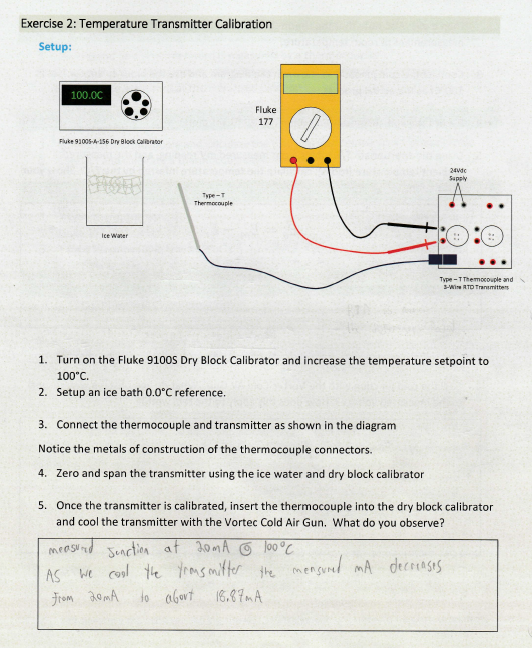 Exercise 2: Temperature Transmitter Calibration
Setup:
100.0C
Fluke
177
Fluke 9100S-A-156 Dry Block Calibrator
24Vdc
Supply
Type – T
Thermocouple
Ice Water
Type – T Thermocouple and
3-Wire RTD Transmitters
1. Turn on the Fluke 9100S Dry Block Calibrator and increase the temperature setpoint to
100°C.
2. Setup an ice bath 0.0°C reference.
3. Connect the thermocouple and transmitter as shown in the diagram
Notice the metals of construction of the thermocouple connectors.
4. Zero and span the transmitter using the ice water and dry block calibrator
5. Once the transmitter is calibrated, insert the thermocouple into the dry block calibrator
and cool the transmitter with the Vortec Cold Air Gun. What do you observe?
measurd Junction at 20mA @ 100°C
AS we cool the transmitter the mensured mA decreases
from 20mA to about 18.87mA